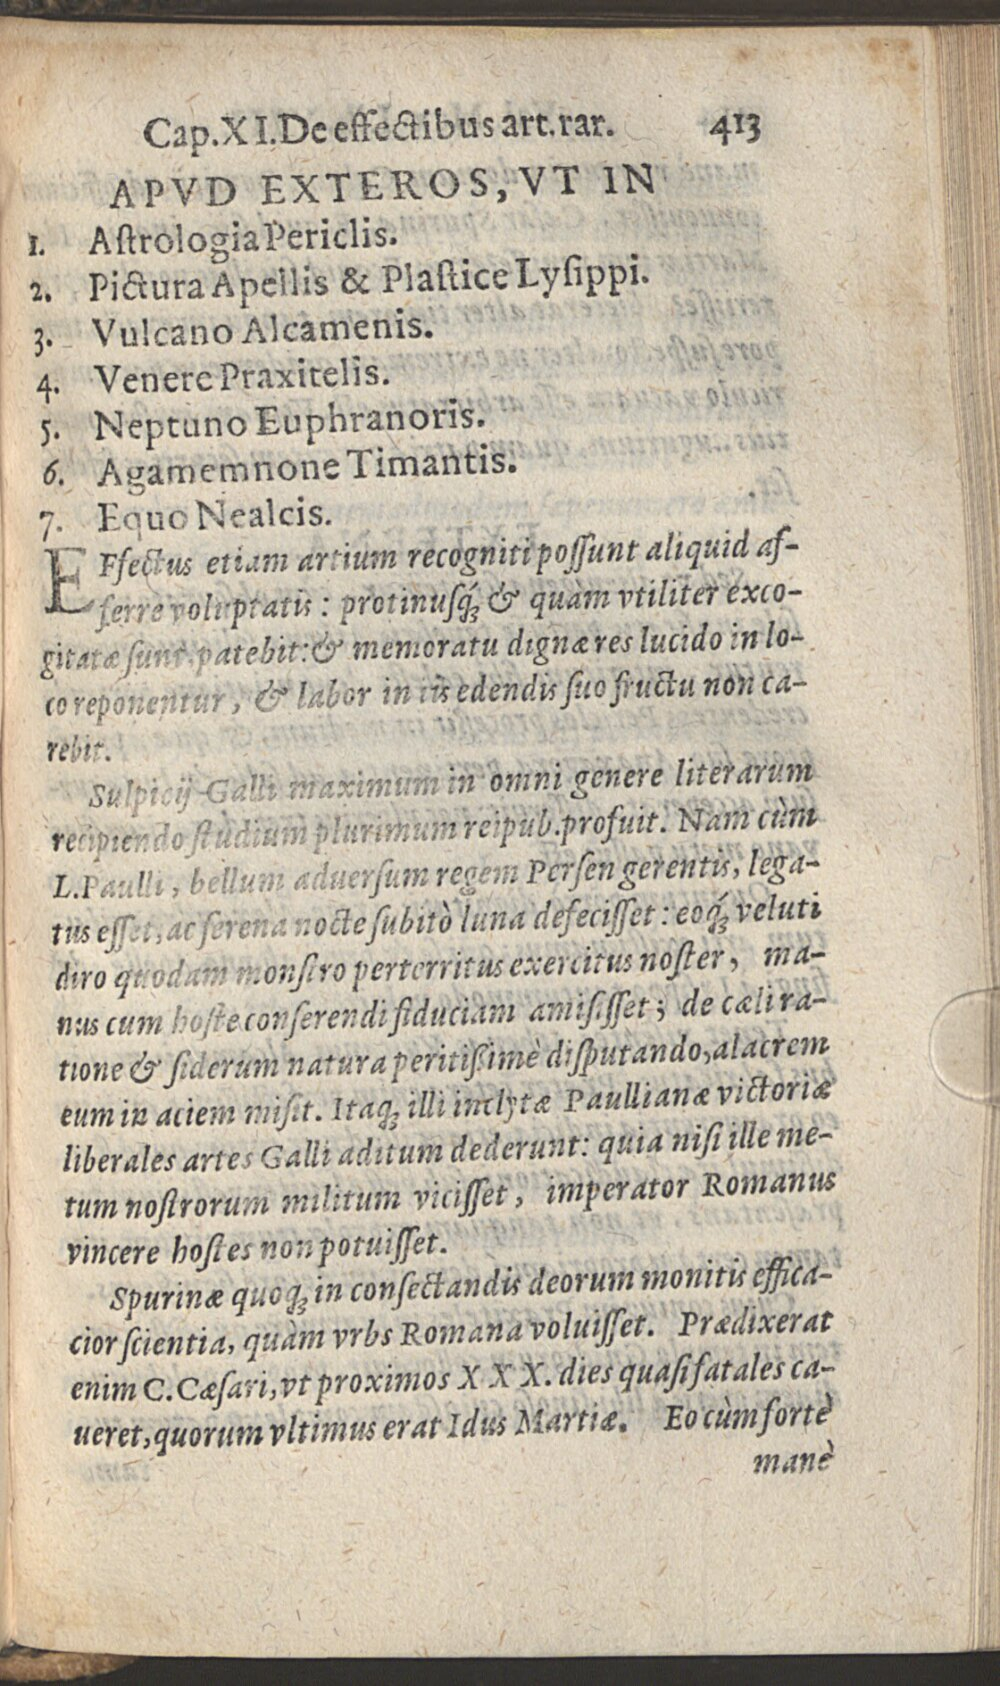 Cap. XI. De effectibus art. rar. 413
APVD EXTEROS, VT IN
1. Astrologia Periclis.
2. Pictura Apellis & Plastice Lysippi.
3. Vulcano Alcamenis.
4. Venere Praxitelis.
5. Neptuno Euphranoris.
6. Agamemnone Timantis.
7. Equo Nealcis.
EFfectus etiam artium recogniti poſſunt aliquid af-
ferre voluptatis: protinuſq́ꝫ & quàm vtiliter exco-
gitatæ ſunt, patebit: & memoratu dignæ res lucido in lo-
co reponentur, & labor in iis edendis ſuo fructu non ca-
rebit.
Sulpicij Galli maximum in omni genere literarum
recipiendo ſtudium plurimum reipub. profuit. Nam cùm
L. Paulli, bellum aduerſum regem Perſen gerentis, lega-
tus eſſet, ac ſerena nocte ſubitò luna defeciſſet: eoq́ꝫ veluti
diro quodam monſtro perterritus exercitus noſter, ma-
nus cum hoſte conſerendi fiduciam amiſiſſet; de cæli ra-
tione & ſiderum natura peritiſſimè diſputando, alacrem
eum in aciem miſit. Itaqꝫ illi inclytæ Paullianæ victoriæ
liberales artes Galli aditum dederunt: quia niſi ille me-
tum noſtrorum militum viciſſet, imperator Romanus
vincere hoſtes non potuiſſet.
Spurinæ quoqꝫ in conſectandis deorum monitis effica-
cior ſcientia, quàm vrbs Romana voluiſſet. Prædixerat
enim C. Cæſari, vt proximos XXX. dies quaſi fatales ca-
ueret, quorum vltimus erat Idus Martiæ. Eo cùm fortè
manè